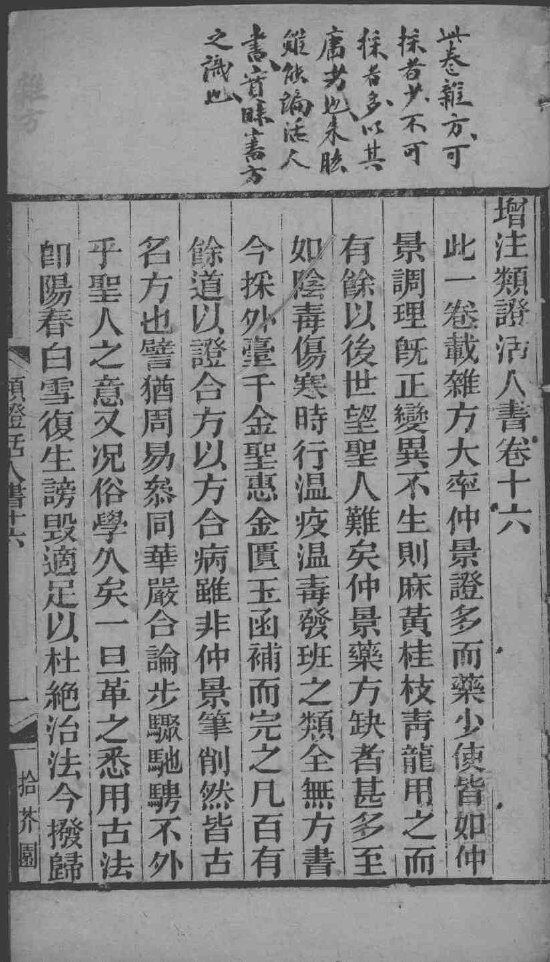 此卷雜方可
採者少不可
採者多以其
庸劣也朱肱
雖能編活人
書實昧書方
之識也
增注類證活人書卷十六
此一卷載雜方大率仲景證多而藥少使皆如仲
景調理旣正變異不生則麻黃桂枝靑龍用之而
有餘以後世望聖人難矣仲景藥方缺者甚多至
如陰毒傷寒時行温疫温毒發班之類全無方書
今採外臺千金聖惠金匱玉函補而完之凡百有
餘道以證合方以方合病雖非仲景筆削然皆古
名方也譬猶周易叅同華嚴合論步驟馳騁不外
乎聖人之意又况俗學久矣一旦革之悉用古法
卽陽春白雪復生謗毀適足以杜絶治法今撥歸
類證活人書十六
一
拾芥園